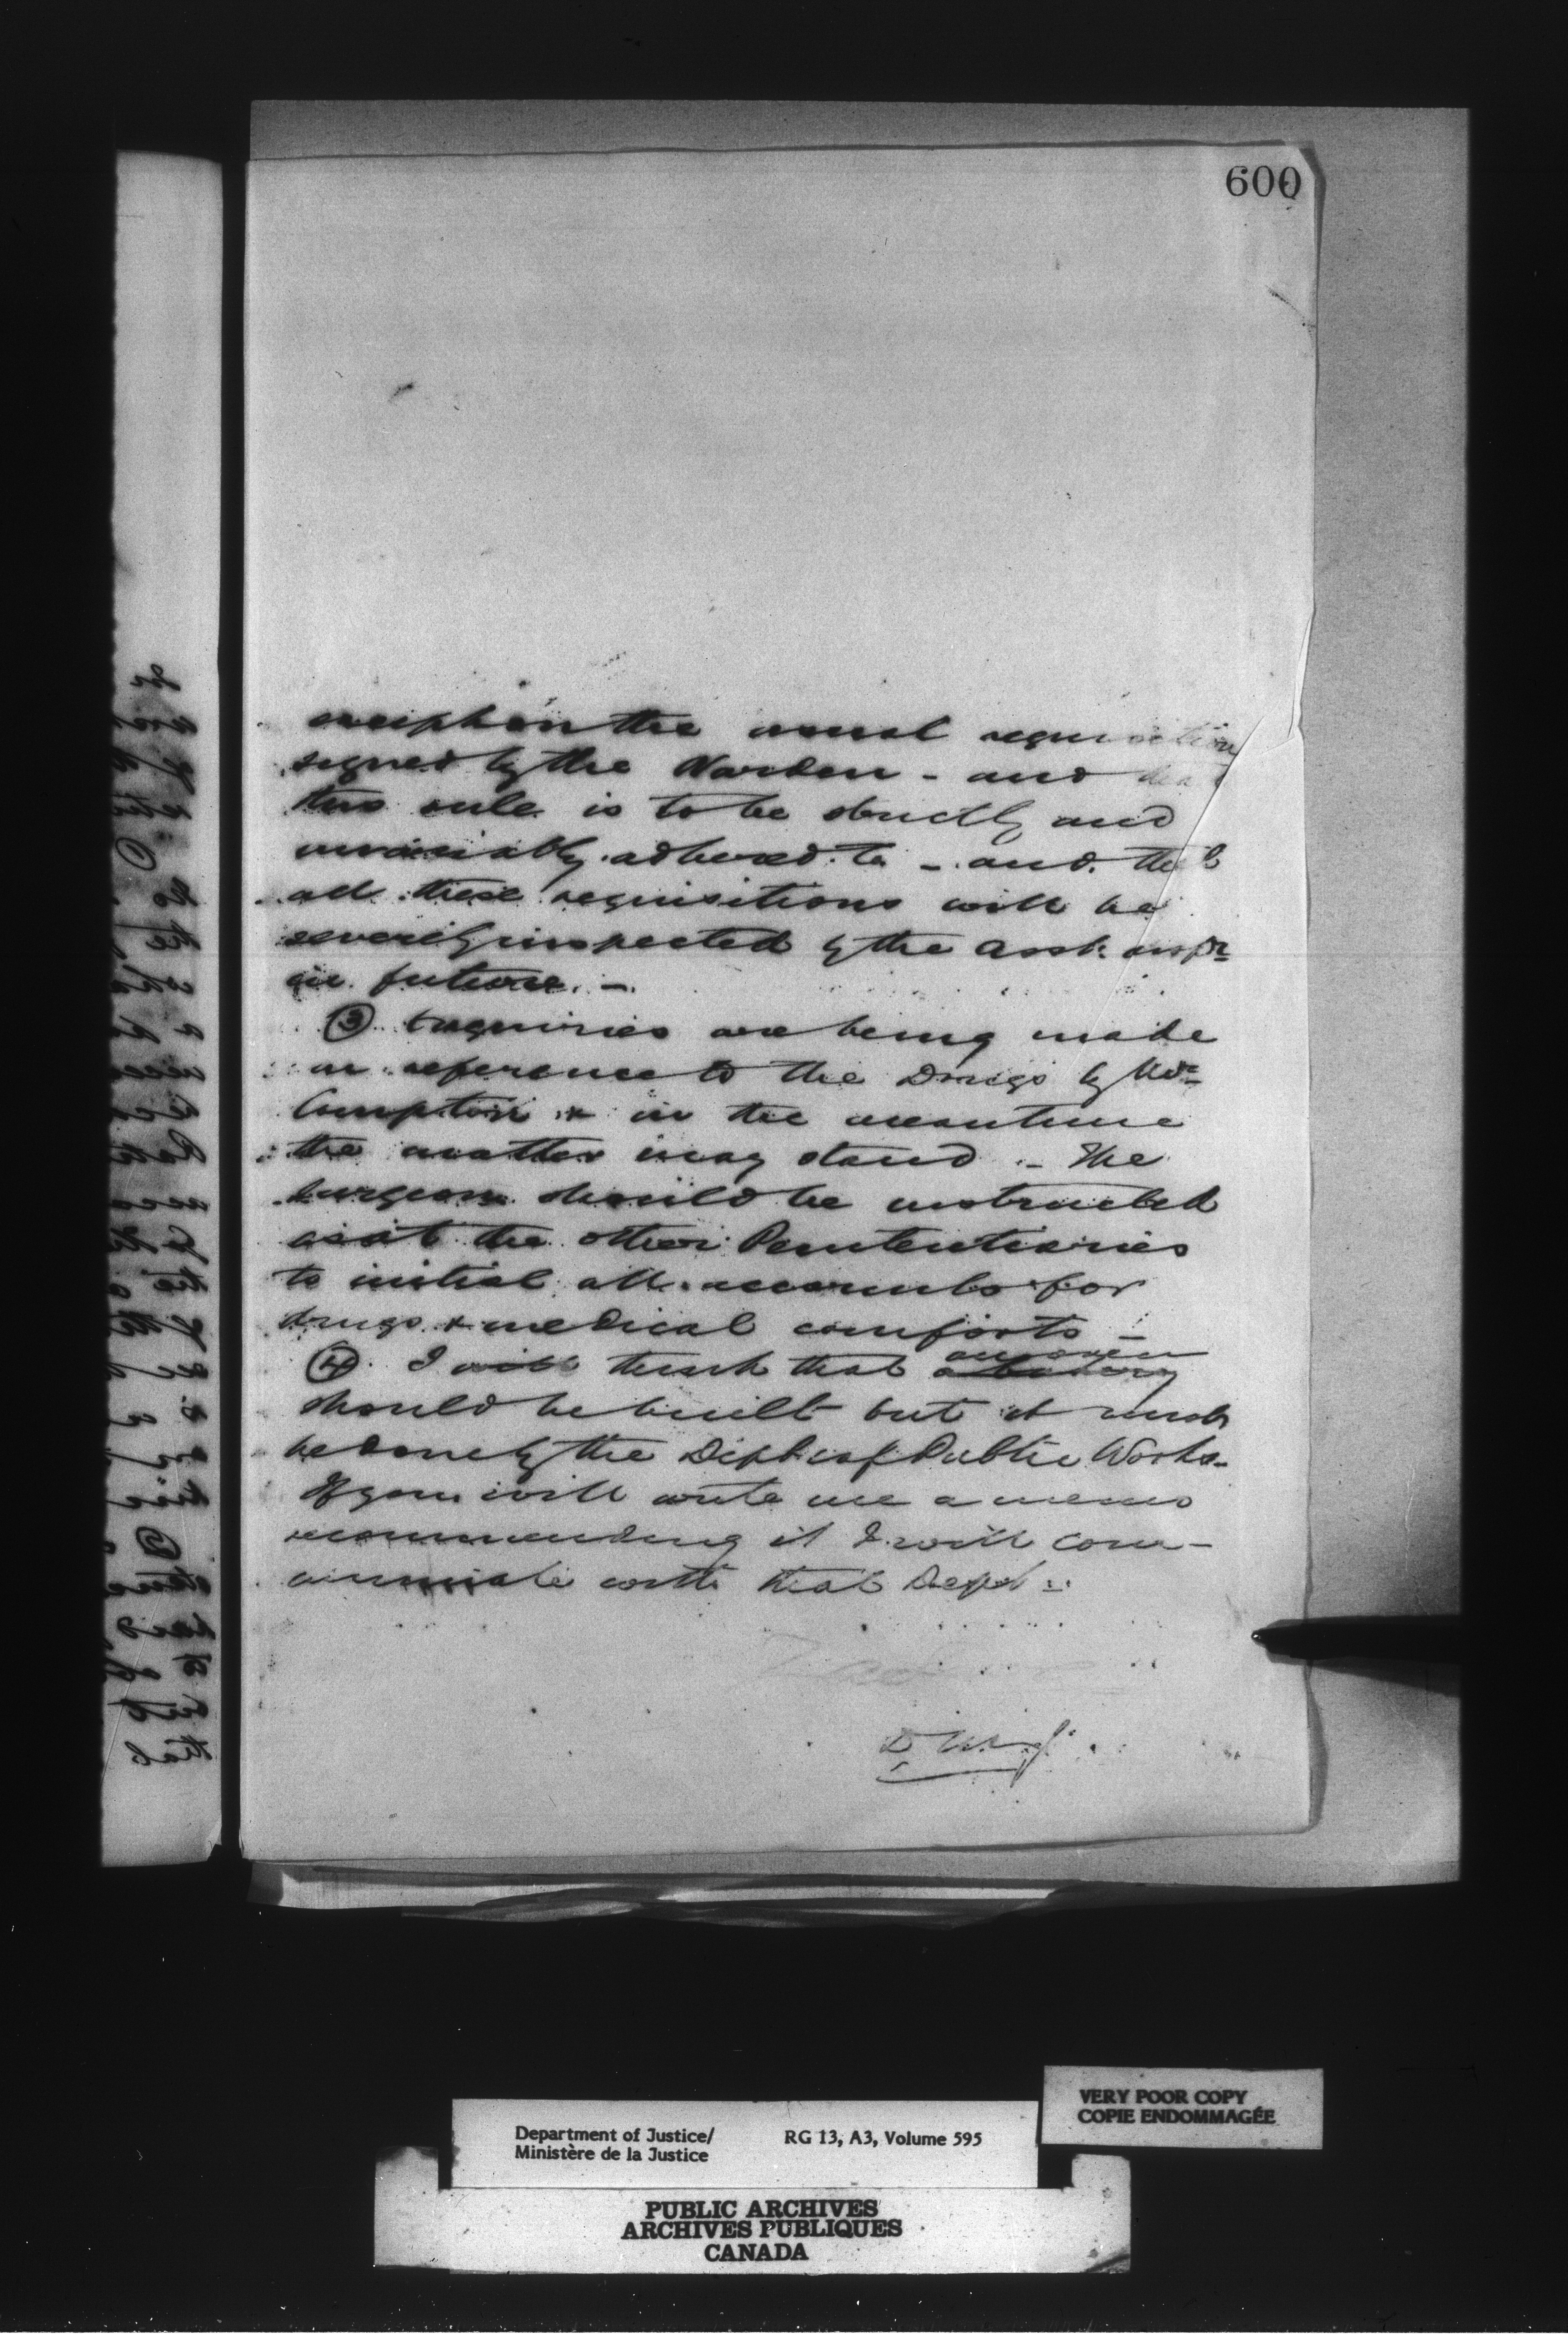 600
except on the usual requisition
signed by the Warden - and that
this rule is to be strictly and
invariably adhered to - and that
all these requisitions will be
severely inspected by the Asst. Inspr
in future. -
(3) Enquiries are being made
in reference to the Drugs by Mr
Compton & in the meantime
the matter may stand - The
Surgeon should be instructed
as at the other Penitentiaries
to initial all accounts for
drugs & medical comforts -
an oven
(4) I will think that a bakery
should be built but it must
be done by the Dept of Public Works.
If you will write me a memo
recommending it I will com-
municate with that Dept.
Department of Justice/
Ministère de la Justice
RG 13, A3, Volume 595
VERY POOR COPY
COPIE ENDOMMAGÉE
PUBLIC ARCHIVES
ARCHIVES PUBLIQUES
CANADA